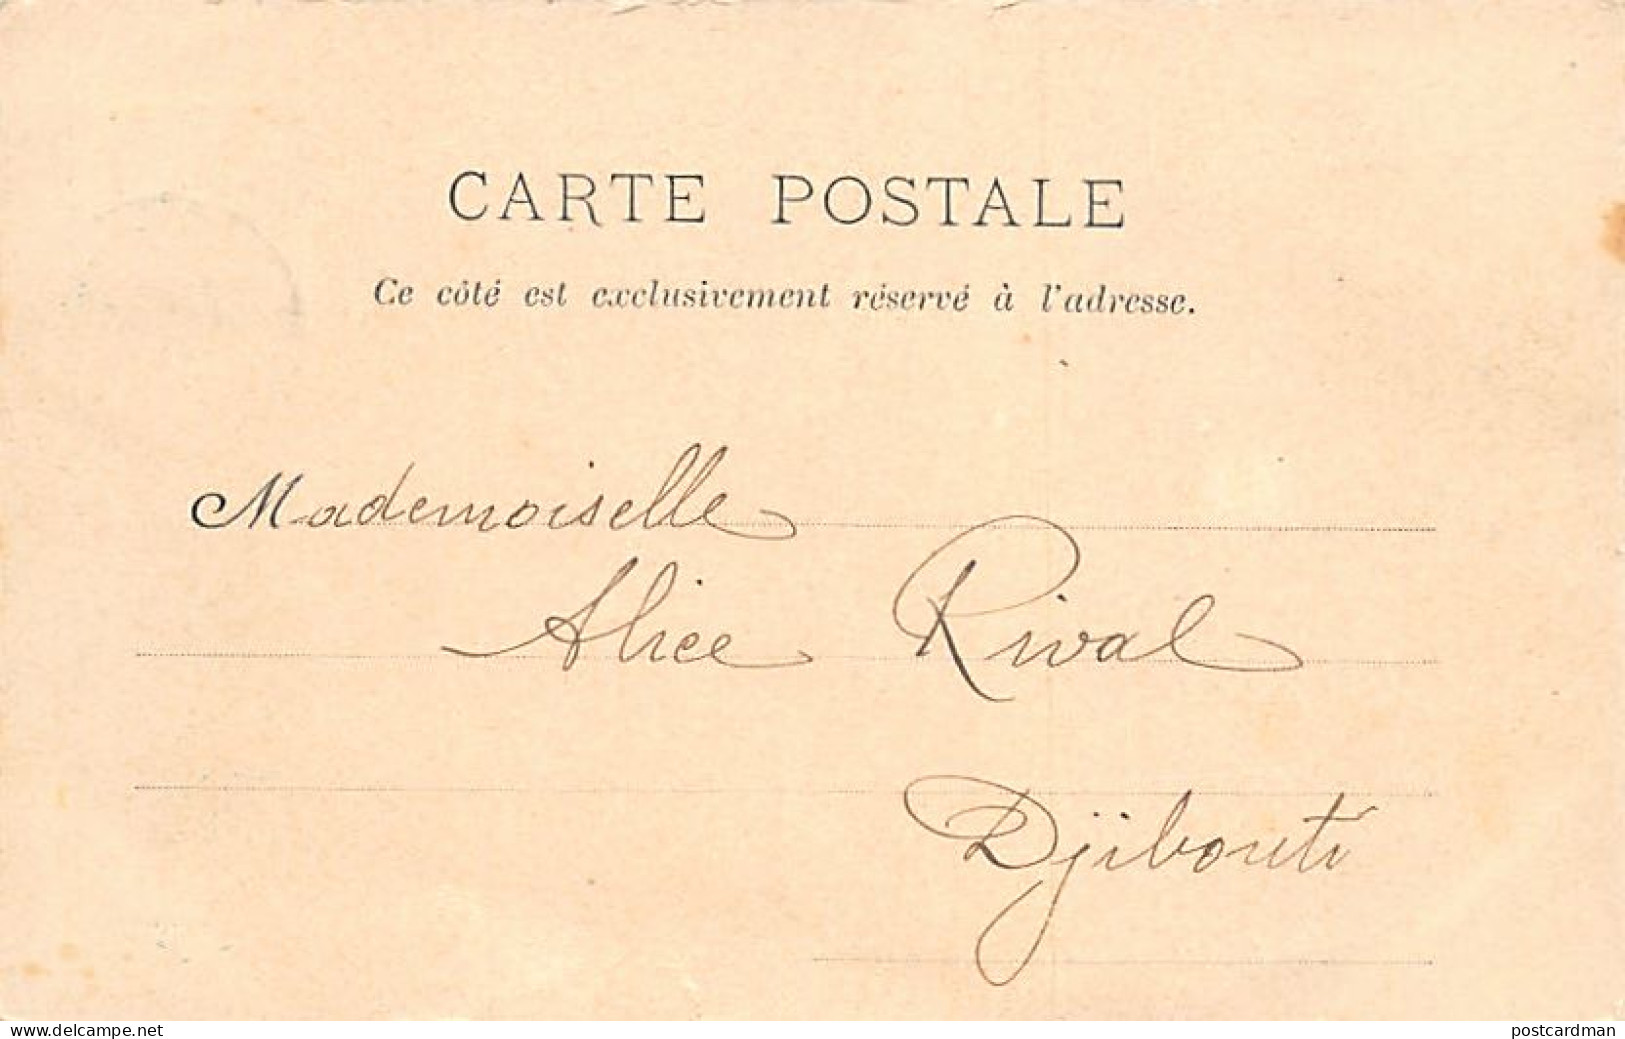 CARTE POSTALE
Ce côté est exclusivement réservé à l'adresse.
Mademoiselle
Alice Rival
Djibouti
www.delcampe.net
postcardman